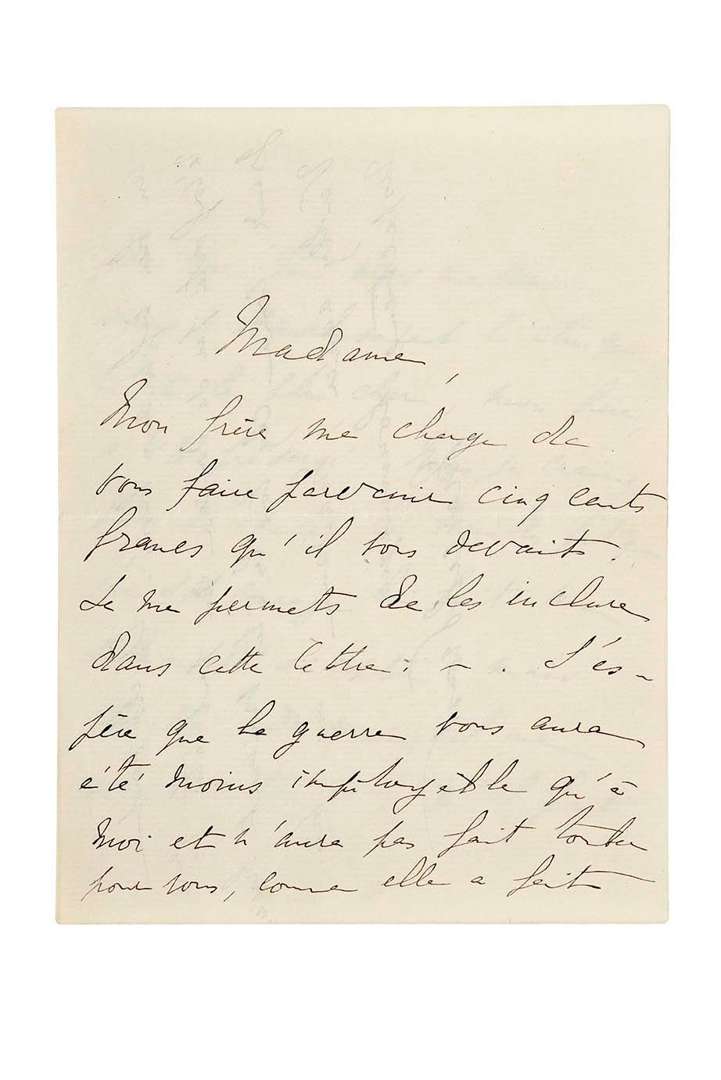 Madame,
Mon frère me charge de
vous faire parvenir cinq cents
francs qu'il vous devait.
Je me permets de les inclure
dans cette lettre. — . J'es-
père que la guerre vous aura
été moins impitoyable qu'à
moi et n'aura pas fait tomber
pour vous, comme elle a fait